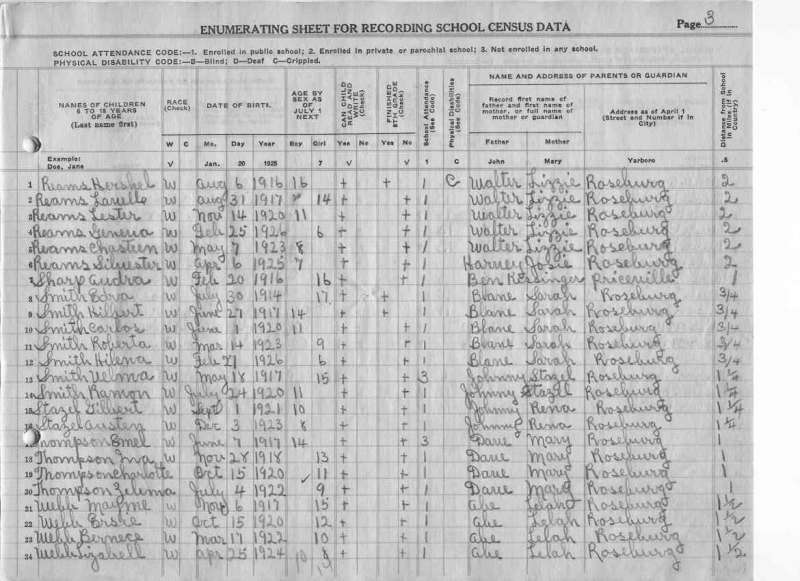 ENUMERATING SHEET FOR RECORDING SCHOOL CENSUS DATA Page 3
SCHOOL ATTENDANCE CODE:—1. Enrolled in public school; 2. Enrolled in private or parochial school; 3. Not enrolled in any school.
PHYSICAL DISABILITY CODE:—B—Blind; D—Deaf C—Crippled.
NAMES OF CHILDREN 6 TO 18 YEARS OF AGE (Last name first) RACE (Check) DATE OF BIRTH AGE BY SEX AS OF JULY 1 NEXT CAN CHILD READ AND WRITE (Check) FINISHED 8TH GRADE (Check) School Attendance (See Code) Physical Disabilities (See Code) NAME AND ADDRESS OF PARENTS OR GUARDIAN Distance from School in Miles (if in Country)
Record first name of father and first name of mother, or full name of mother or guardian Address as of April 1 (Street and Number if In City)
W C Mo. Day Year Boy Girl Yes No Yes No Father Mother
Example: Doe, Jane V Jan. 20 1925 7 V V 1 C John Mary Yarboro .5
1 Reams Hershel W Aug 6 1916 16 + + 1 C Walter Lizzie Roseburg 2
2 Reams W Aug 31 1917 14 + + 1 Walter Lizzie Roseburg 2
3 Reams Lester W Nov 14 1920 11 + + 1 Walter Lizzie Roseburg 2
4 Reams Geneva W Feb 25 1926 6 + + 1 Walter Lizzie Roseburg 2
5 Reams Chasteen W May 7 1923 8 + + 1 Walter Lizzie Roseburg 2
6 Reams Silvester W Apr 6 1925 7 + + 1 Harvey Josie Roseburg 2
7 Sharp Audra W Feb 20 1916 16 + + 1 Ben Kessinger Priceville 1
8 Smith Edva W July 30 1914 17 + + 1 Blane Sarah Roseburg 3/4
9 Smith Hilbert W June 27 1917 14 + + 1 Blane Sarah Roseburg 3/4
10 Smith Carlos W June 1 1920 11 + + 1 Blane Sarah Roseburg 3/4
11 Smith Roverta W Mar 14 1923 9 + + 1 Blane Sarah Roseburg 3/4
12 Smith Hilena W Feb 21 1926 6 + + 1 Blane Sarah Roseburg 3/4
13 Smith Velma W May 18 1917 15 + + 3 Johnny Stazel Roseburg 1 1/4
14 Smith Ramon W July 24 1920 11 + + 1 Johnny Stazel Roseburg 1 1/4
15 Stazel Gilbert W Sept 1 1921 10 + + 1 Johnny Rena Roseburg 1 1/4
Stazel Austen W Dec 3 1923 8 + + 1 Johnny Rena Roseburg 1 1/4
Thompson Emel W June 7 1917 14 + + 3 Dave Mary Roseburg 1
18 Thompson Iva W Nov 28 1918 13 + + 1 Dave Mary Roseburg 1
19 Thompson Charlotte W Oct 15 1920 ✓ 11 + + 1 Dave Mary Roseburg 1
20 Thompson Zelma W July 4 1922 9 + + 1 Dave Mary Roseburg 1
21 Webb Mayme W Nov 6 1917 15 + + 1 Abe Lelah Roseburg 1 1/2
22 Webb Ershe W Oct 15 1920 12 + + 1 Abe Lelah Roseburg 1 1/2
23 Webb Bernece W Mar 17 1922 10 + + 1 Abe Lelah Roseburg 1 1/2
24 Webb Lizabell W Apr 25 1924 8 + + 1 Abe Lelah Roseburg 1 1/2